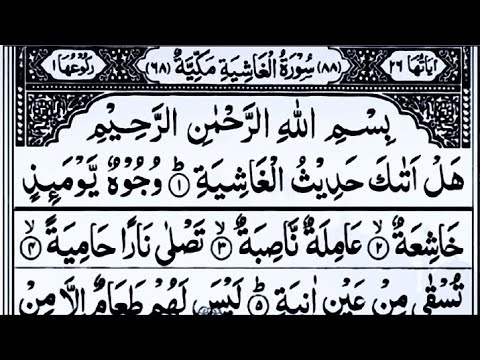 اٰیَاتُهَا ٢٦ (٨٨) سُوْرَةُ الْغَاشِيَةِ مَكِّيَّةٌ (٦٨) رُكُوْعُهَا ١
بِسْمِ اللّٰهِ الرَّحْمٰنِ الرَّحِيْمِ
هَلْ اَتٰىكَ حَدِيْثُ الْغَاشِيَةِ ؕ ١ وُجُوْهٌ يَّوْمَىِٕذٍ
خَاشِعَةٌ ۙ ٢ عَامِلَةٌ نَّاصِبَةٌ ۙ ٣ تَصْلٰى نَارًا حَامِيَةً ۙ ٤
تُسْقٰى مِنْ عَيْنٍ اٰنِيَةٍ ؕ ٥ لَيْسَ لَهُمْ طَعَامٌ اِلَّا مِنْ